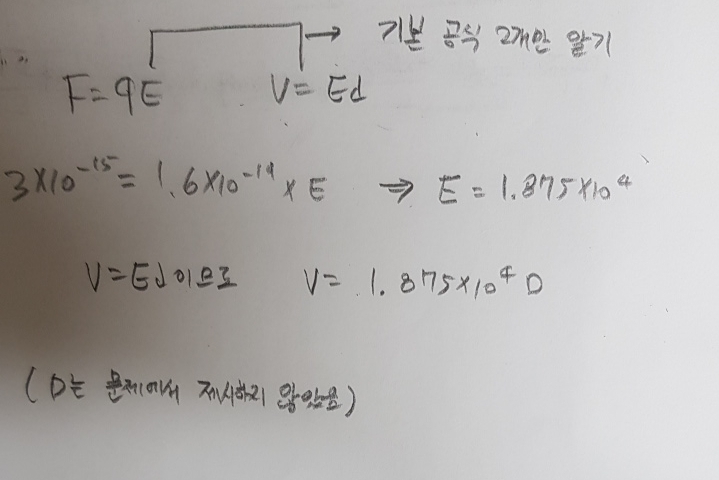 기본 공식 2개만 알기
F = qE V = Ed
3×10⁻¹⁵ = 1.6×10⁻¹⁹ × E ⇒ E = 1.875×10⁴
V = Ed 이므로 V = 1.875×10⁴ D
(D는 문제에서 제시하지 않았음)